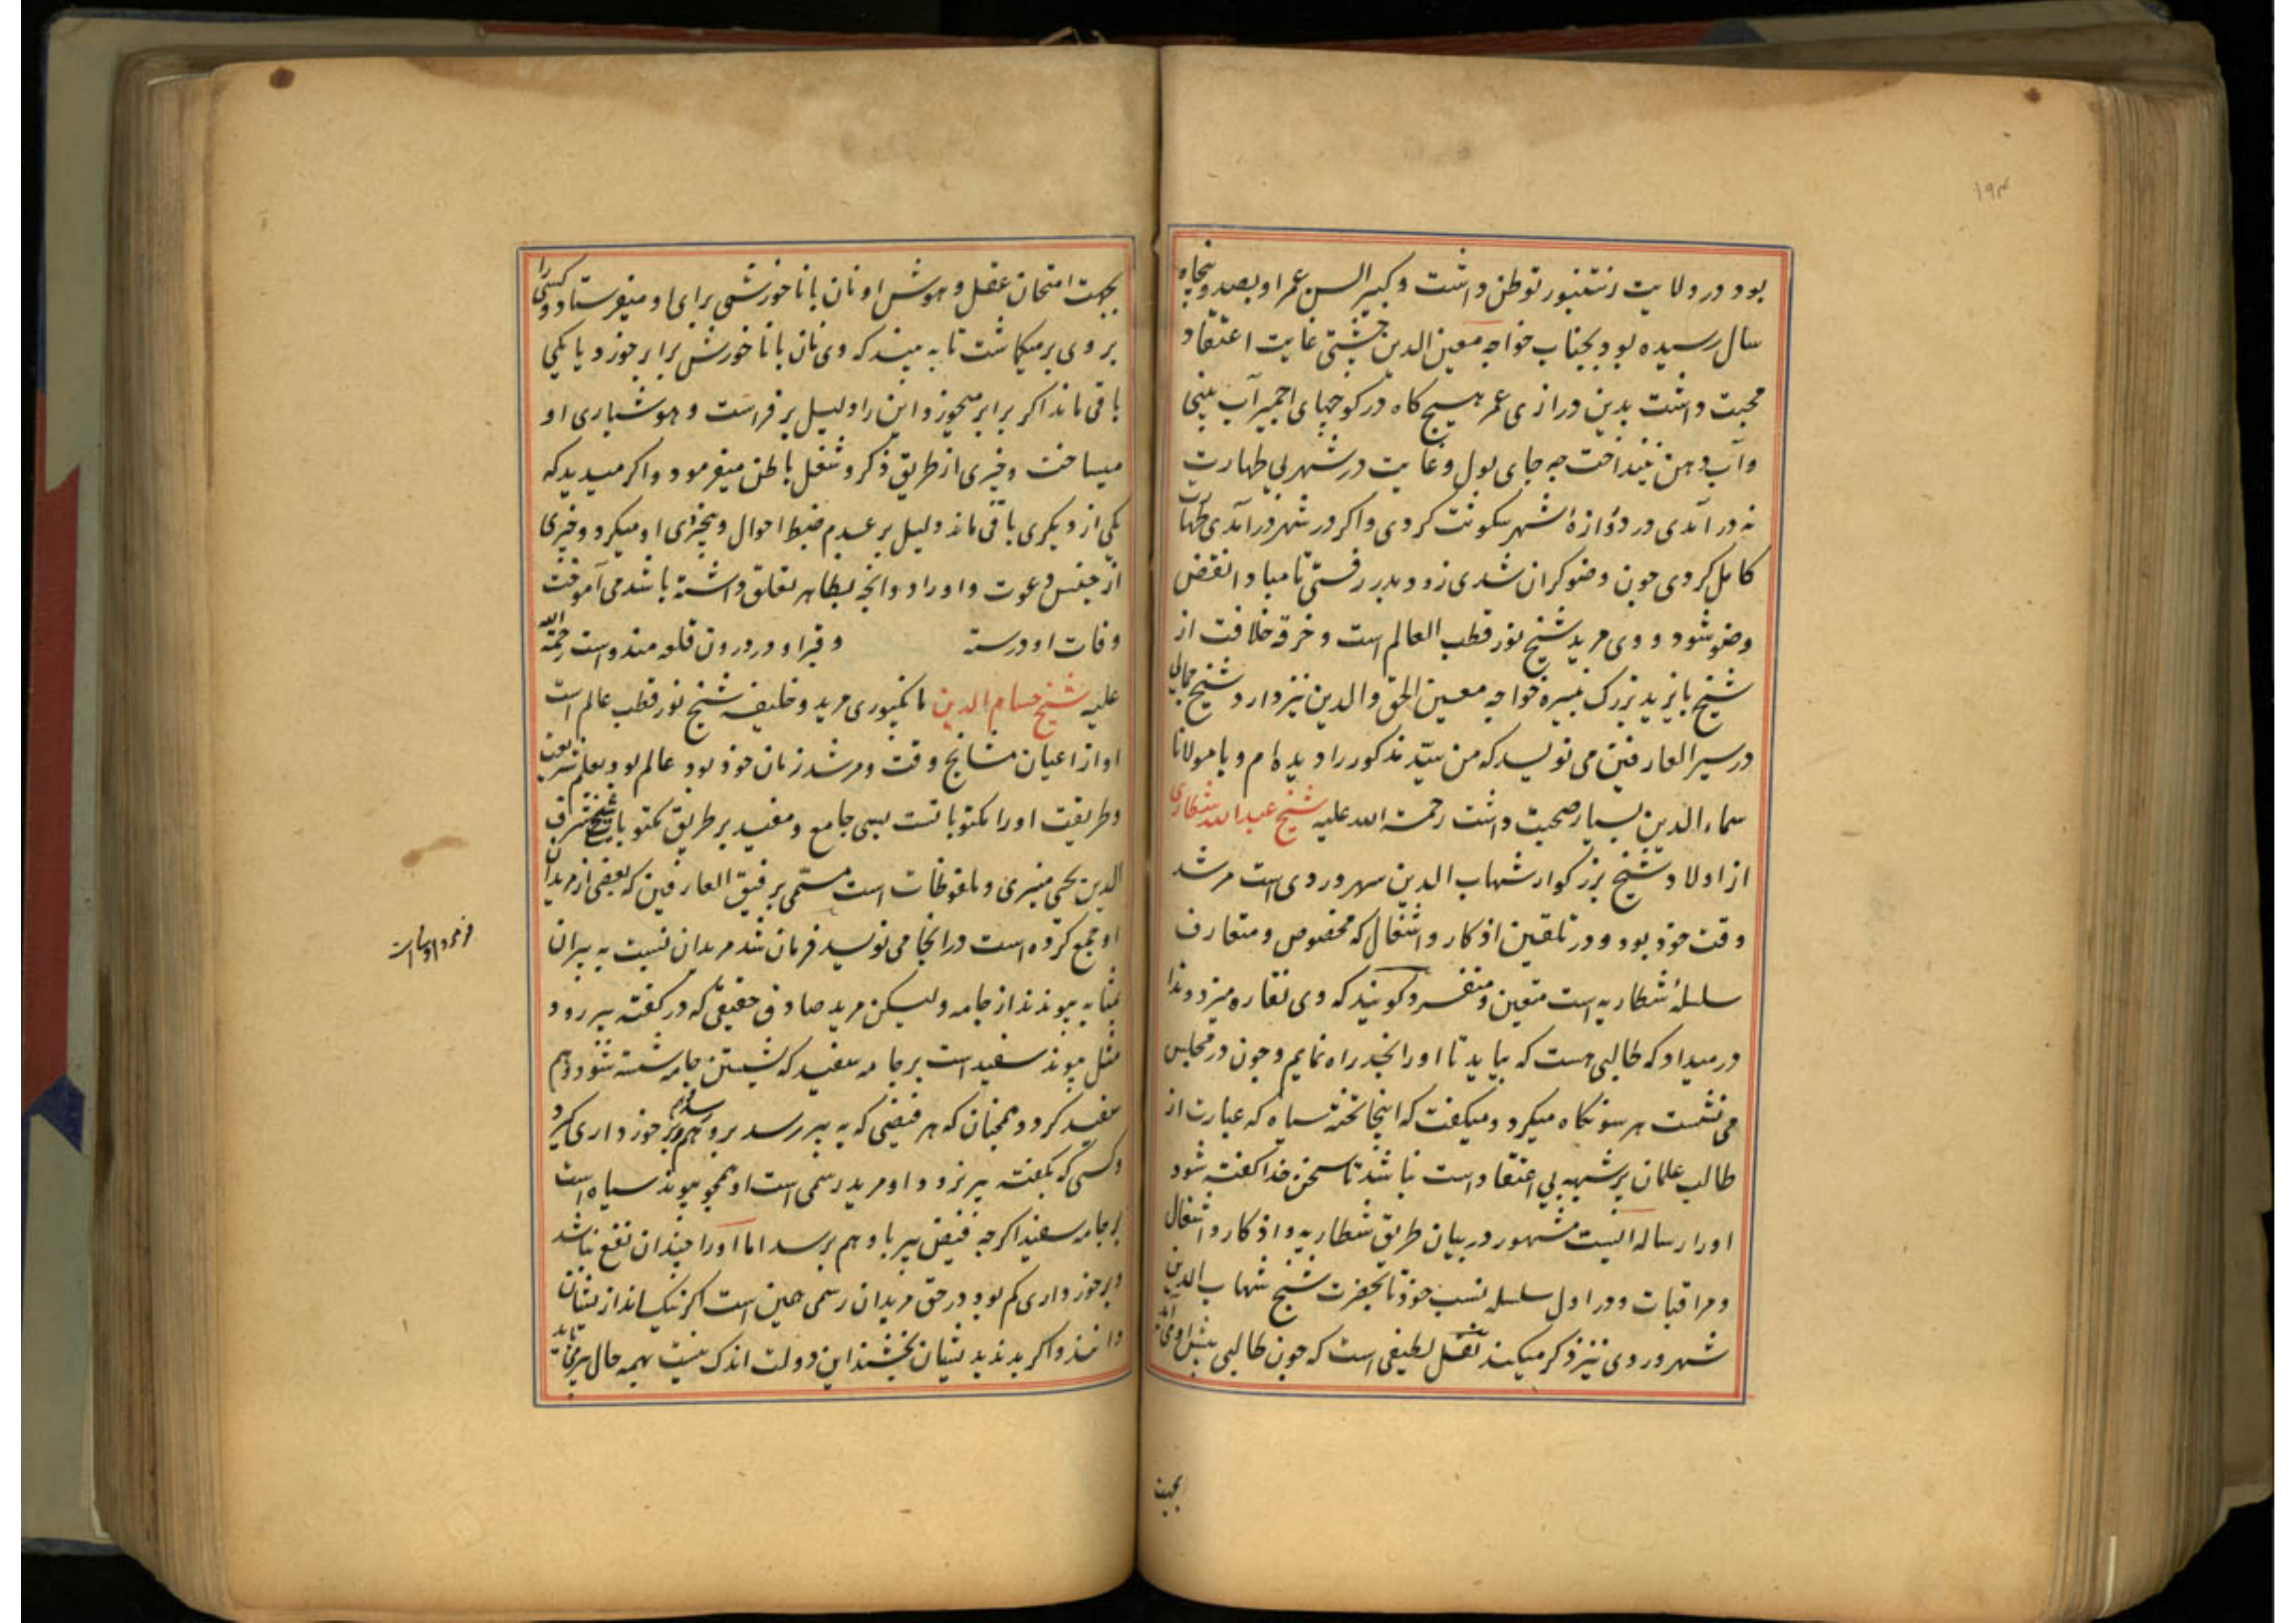 ۱۹۴
بود و در ولایت رنتنبور توطن داشت و کبیر السن عمر او بصد و پنجاه
سال رسیده بود و بجناب خواجه معین الدین چشتی غایت اعتقاد و
محبت داشت بدین درازی عمر هیچ کاه در کوچهای اجمیر آب بینی
و آب دهن نینداخت چه جای بول و غایت در شهر بی طهارت
نه در آمدی در دروازهٔ شهر سکونت کردی و اکر در شهر در آمدی طهارت
کامل کردی چون وضو کران شدی زود بدر رفتی تا مبادا نقض
وضو شود و وی مرید شیخ نور قطب العالم است و خرقه خلافت از
شیخ بایزید بزرک نبیره خواجه معین الحق والدین نیز دارد و شیخ جمالی
در سیر العارفین می نویسد که من سیّد مذکور را دیده ام و با مولانا
سماء الدین بسیار صحبت داشت رحمة الله علیه شیخ عبد الله شطاری
از اولاد شیخ بزرکوار شهاب الدین سهروردی است مرشد
وقت خود بود و در تلقین اذکار و اشغال که مخصوص و متعارف
سلسلهٔ شطاریه است متعین و متفرد کویند که وی نقاره میزد و ندا
در میداد که طالبی هست که بیاید تا او را بخدا راه نمایم و چون در مجلس
می نشست هر سو نکاه میکرد و میکفت که اینجا تخته سیاه که عبارت از
طالب علمان پر شبهه بی اعتقاد است نباشد تا سخن خدا کفته شود
او را رساله ایست مشهور در بیان طریق شطاریه و اذکار و اشغال
و مراقبات و در اول سلسله نسب خود تا بحضرت شیخ شهاب الدین
شهروردی نیز ذکر میکند نقل لطیفی است که چون طالبی پیش او می
بجهت
بجهت امتحان عقل و هوش او نان با نا خورشی برای او میفرستاد و کسی را
بر وی بر میکماشت تا به بیند که وی نان با نا خورش برابر خورد یا یکی
باقی ماند اکر برابر میخورد این را دلیل بر فراست و هوشیاری او
میساخت و چیزی از طریق ذکر و شغل باطن میفرمود و اکر میدید که
یکی از دیکری باقی ماند دلیل بر عدم ضبط احوال و بیخبری او میکرد و چیزی
از جنس دعوت و اوراد و انچه بظاهر تعلق داشته باشد می آموخت
وفات او در سنه و قبر او در درون قلعه مندو است رحمة الله
علیه شیخ حسام الدین مانکپوری مرید و خلیفه شیخ نور قطب عالم است
او از اعیان مشایخ وقت و مرشد زمان خود بود عالم بود بعلم شریعت
و طریقت او را مکتوباتست بسی جامع و مفید بر طریق مکتوبات شیخ شرف
الدین یحیی منیری و ملفوظات است مسمّی برفیق العارفین که بعضی از مریدان
او جمع کرده است در انجا می نویسد فرمان شد مریدان نسبت به پیران
بمثابه پیوندند از جامه ولیکن مرید صادق حقیقی که در کفته پیر رود
مثل پیوند سفید است بر جامه سفید که بشستن جامه شسته شود و هم
سفید کردد همچنان که هر فیضی که به پیر رسد برو هم رسد و برخورداری کیرد
و کسی که بکفته پیر نرود او مرید رسمی است او همچو پیوند سیاه است
بر جامه سفید اکر چه فیض پیر باو هم برسد اما او را چندان نفع نباشد
و برخورداری کم بود در حق مریدان رسمی همین است اکر نیک اند از نیشان
دانند و اکر بدند بدیشان بخشند این دولت اندک نیست بهمه حال پیر